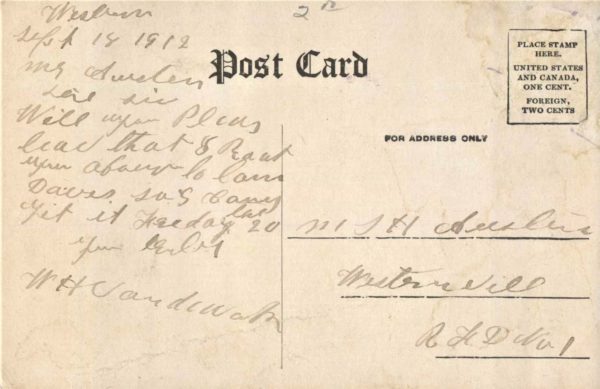 Western
Sept 18 1912
Mr Austin
Dere sir
Will you Pleas
leav that
your
Davis so I can
git it Friday the 20
your
W H Vandewater
2
Post Card
PLACE STAMP
HERE.
UNITED STATES
AND CANADA,
ONE CENT.
FOREIGN,
TWO CENTS
FOR ADDRESS ONLY
M S H Austin
Westernvill
R F D No 1